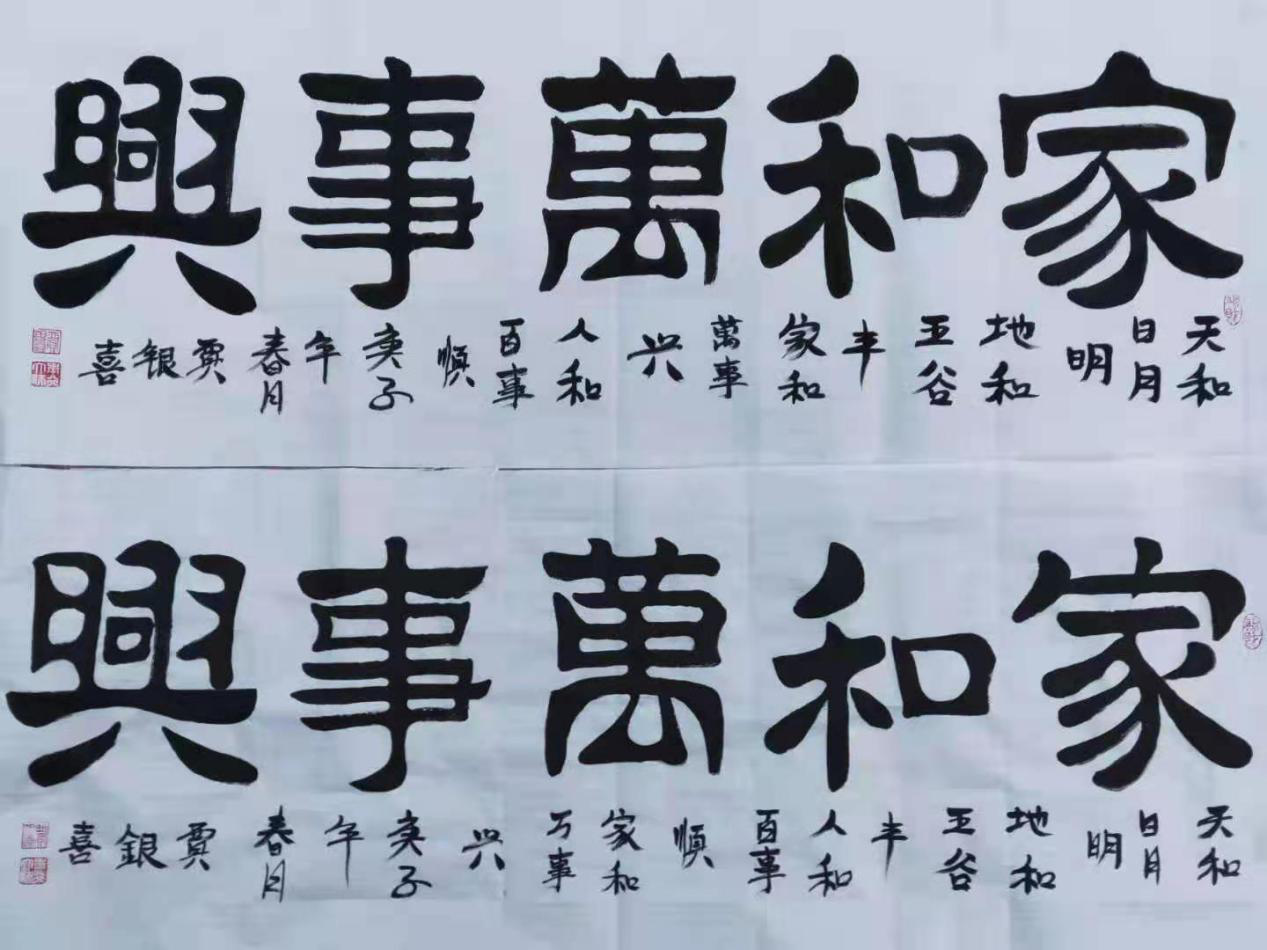 家和萬事興
天和日月明地和五谷丰家和萬事兴人和百事順庚子年春月賈银喜
家和萬事興
天和日月明地和五谷丰人和百事順家和万事兴庚子年春月賈銀喜